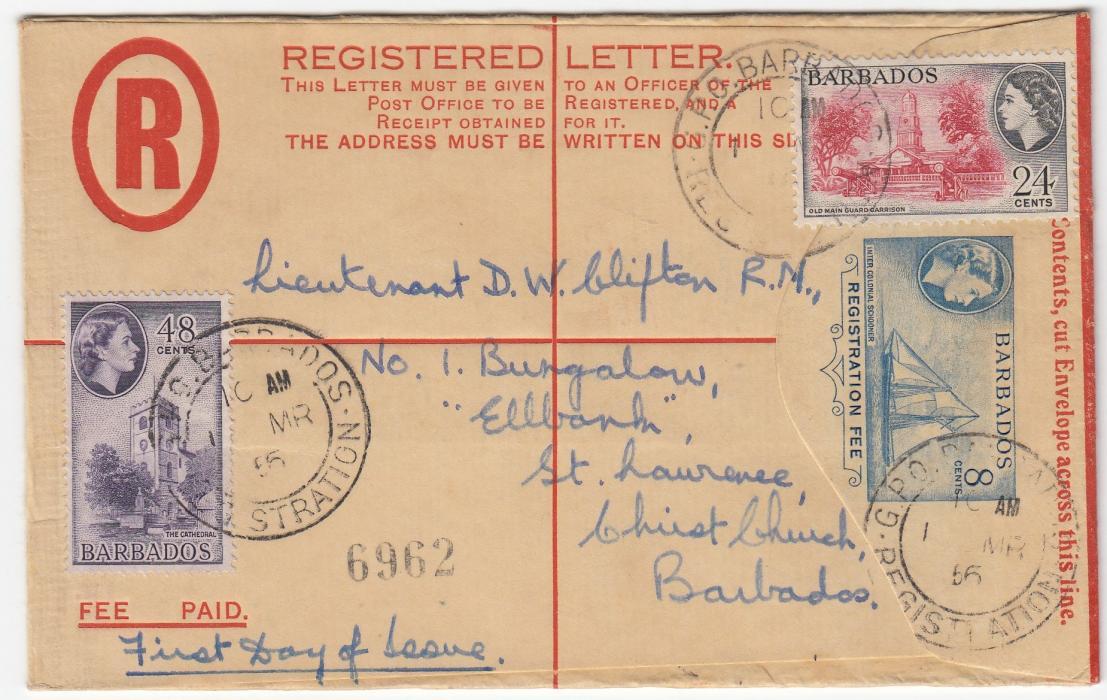 R
REGISTERED LETTER.
THIS LETTER MUST BE GIVEN TO AN OFFICER OF THE
POST OFFICE TO BE REGISTERED, AND A
RECEIPT OBTAINED FOR IT.
THE ADDRESS MUST BE WRITTEN ON THIS
BARBADOS
24
CENTS
OLD MAIN GUARD GARRISON
G.P.O. BARBADOS
10 AM
1
Lieutenant D.W. Clifton R.M.,
No. 1. Bungalow,
"Ellbank",
St. Lawrence,
Christ Church,
Barbados.
48
CENTS
THE CATHEDRAL
BARBADOS
BARBADOS
10 AM
1 MR
56
STRATION
INTER COLONIAL SCHOONER
REGISTRATION FEE
BARBADOS
8
CENTS
Contents, cut Envelope across this line.
G.P.O.
10 AM
1 MR
56
REGISTRATION
6962
FEE PAID.
First Day of Issue.